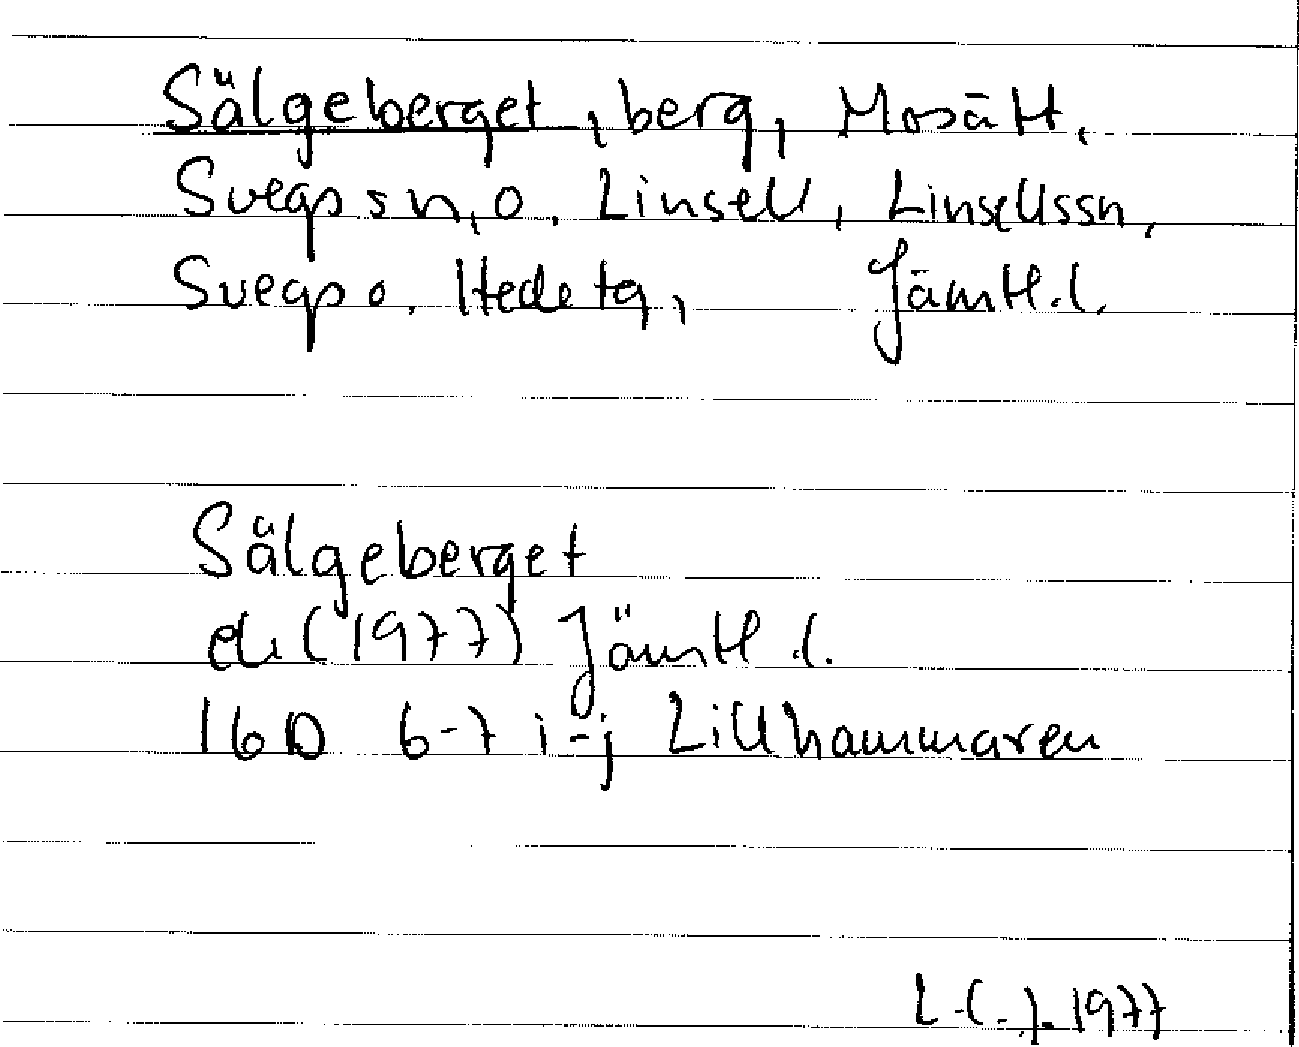 Sälgeberget, berg, Mosätt,
Svegs sn, o. Linsell, Linsellssn,
Svegs o. Hede tg, Jämtl. l.
Sälgeberget
ek (1977) Jämtl. l.
16D 6-7 i-j Lillhammaren
1977